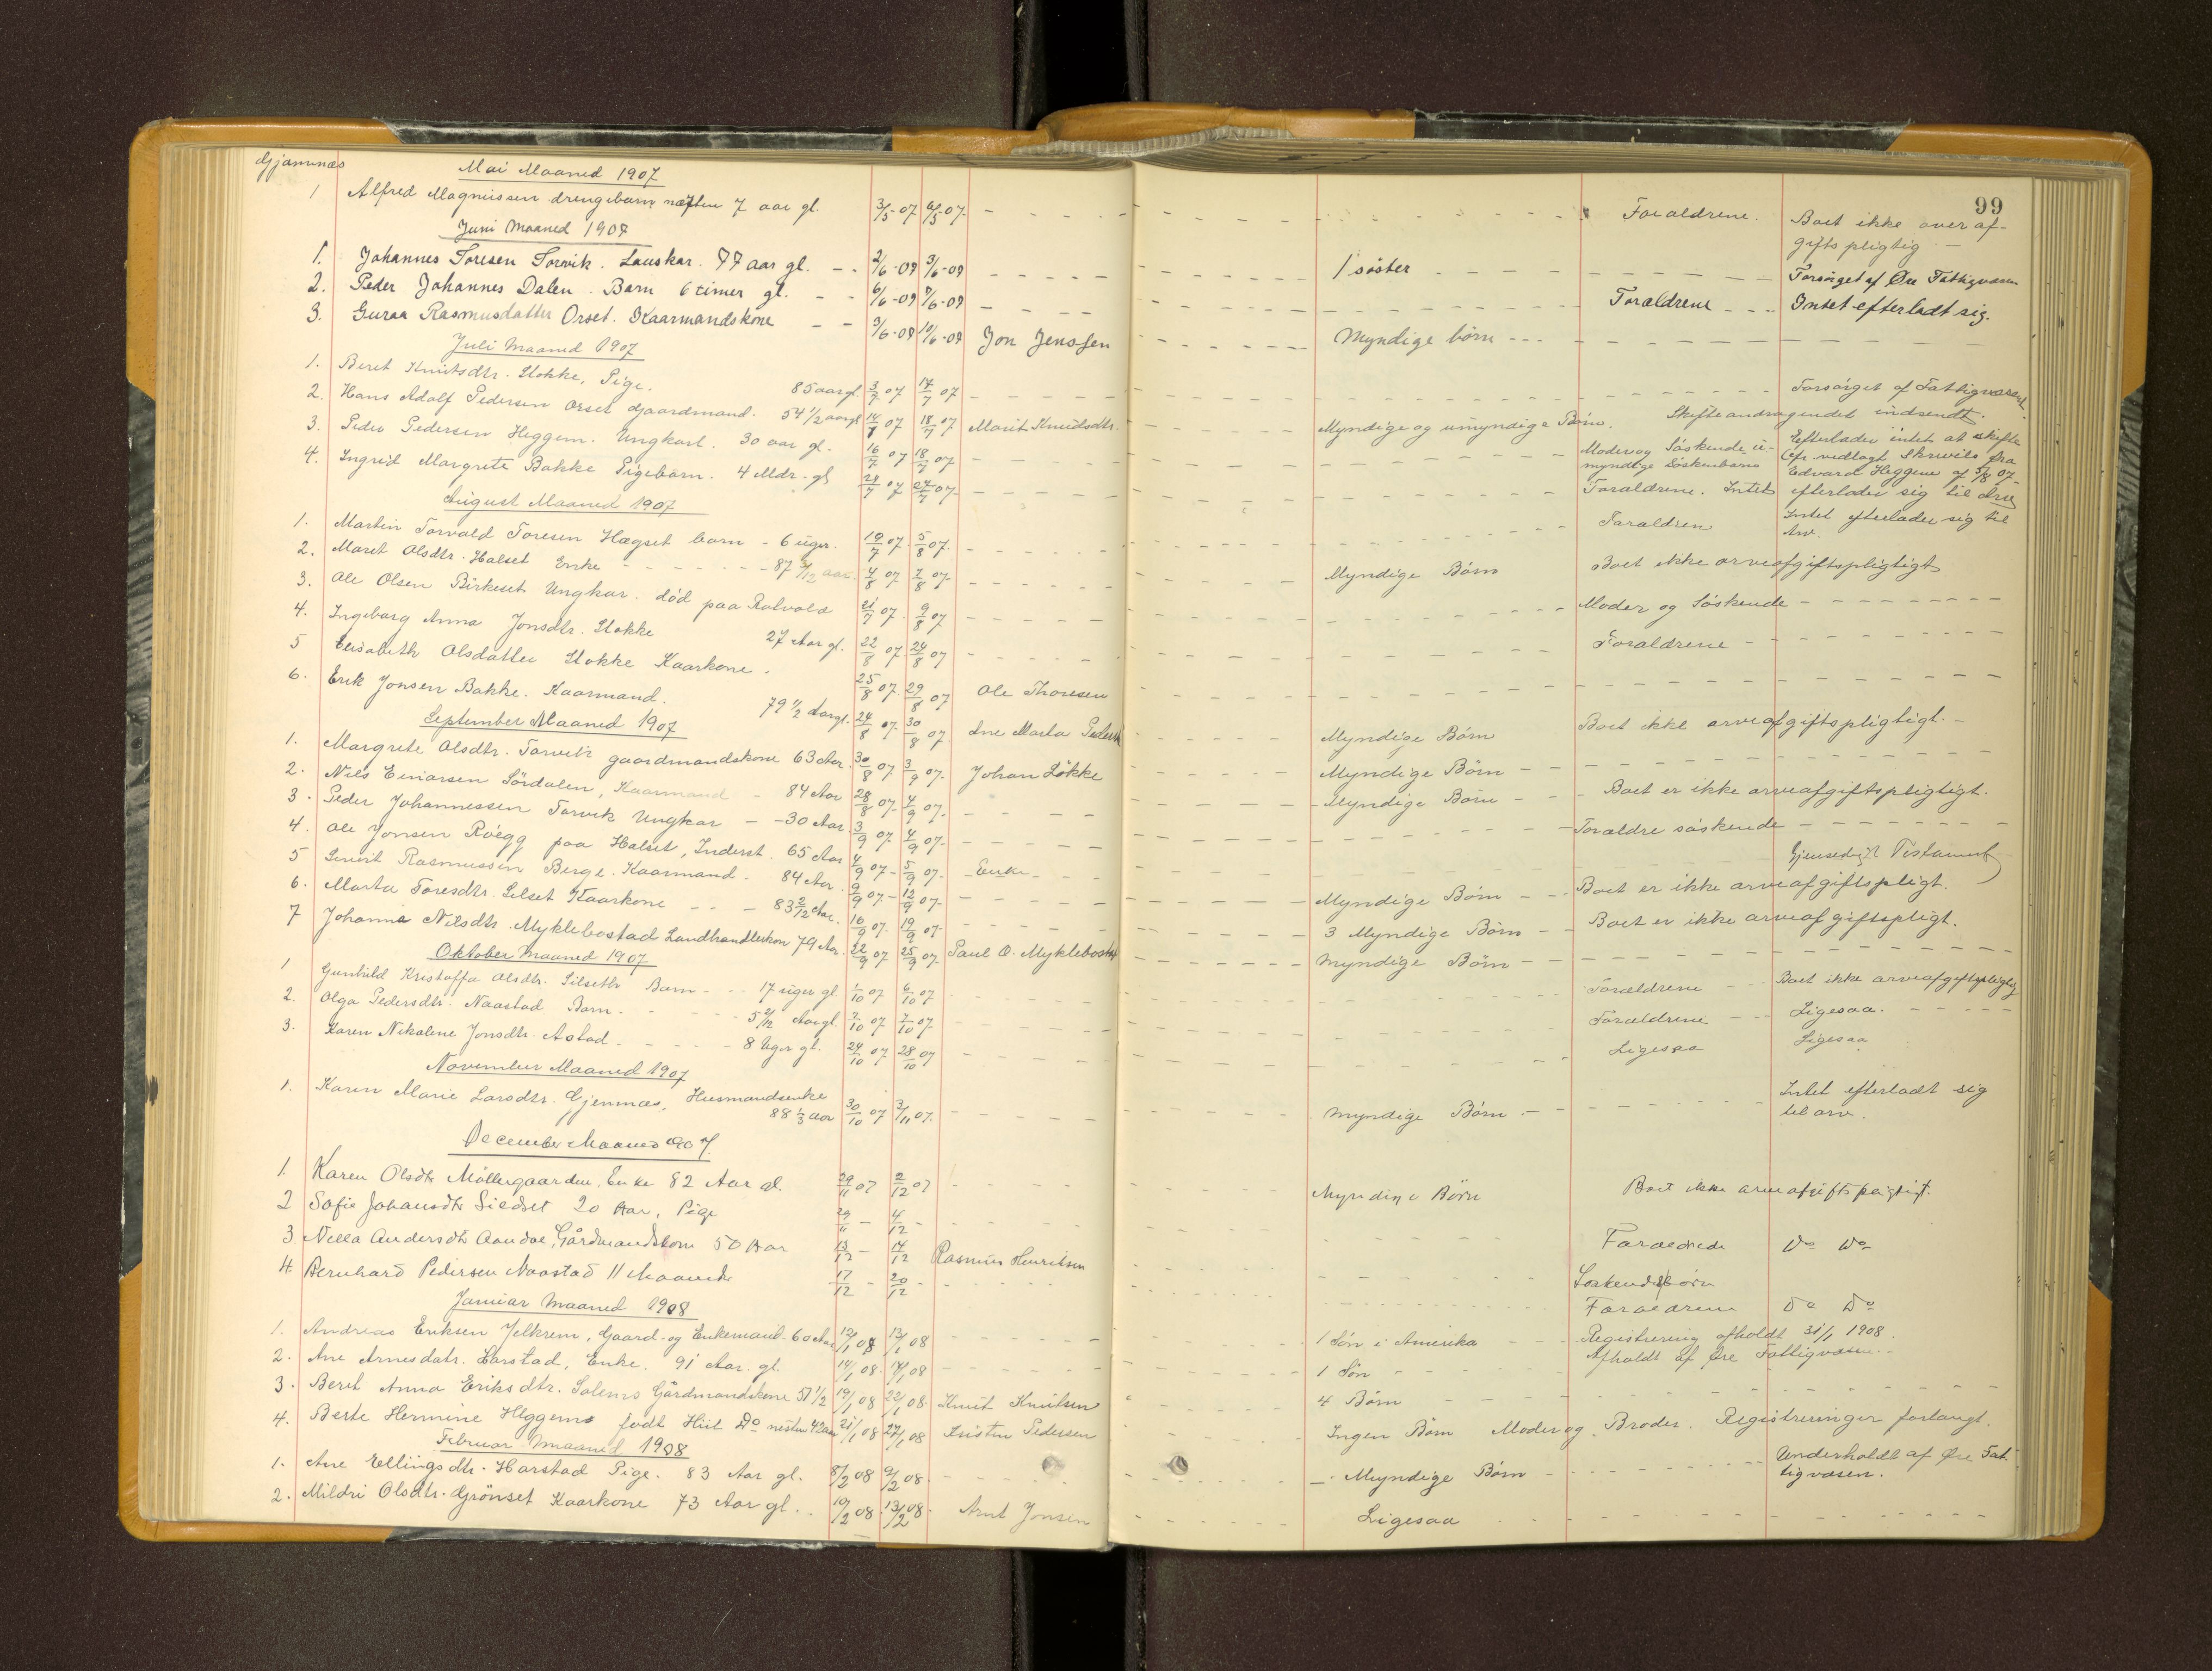 Gjæmnæs
99
Mai Maaned 1907
1 Alfred Magnussen drengebarn næsten 7 aar gl. 3/5-07 6/5-07. - - Forældrene. Boet ikke over af-
giftspligtig -
Juni Maaned 1907
1. Johannes Toresen Torvik. Lauskar. 77 aar gl. - - 2/6-07 3/6-07 - - 1 søster - - Forsørget af Øre Fattigvæsen
2. Peder Johannes Dalen. Barn 6 timer gl. - - 6/6-07 7/6-07 - - Forældrene - - Intet efterladt sig.
3. Guraa Rasmusdatter Orset. Kaarmandskone - - 9/6-07 10/6-07 Jon Jenssen - - Myndige børn - -
Juli Maaned 1907
1. Beret Knutsdtr. Stokke, Pige. 85 aar gl. 3/7 07 17/7 07 - - Forsørget af Fattigvæsenet
2. Hans Adolf Pedersen Orset Gaardmand. 54 1/2 aar gl 14/7 07 18/7 07 Marit Knudsdtr. - - Myndige og umyndige Børn. Skifteandragendet indsendt.
3. Peder Pedersen Heggem. Ungkarl. 30 aar gl. 16/7 07 18/7 07 - - Moder og Søskende u-
myndige Søskenbarn
Efterlader intet at skifte
Cfr. vedlagt Skrivels fra
Edvard Heggem af 3/8 07-
4. Ingrid Margrete Bakke Pigebarn. 4 Mdr. gl 24/7 07 24/7 07- - - Forældrene. Intet efterlader sig til Arv
August Maaned 1907
1. Martin Torvald Toresen Hægset barn - 6 uger. 18/7 07. 5/8 07. - - Forældren Intet efterlader sig til
Arv.
2. Marit Olsdtr. Halset Enke - - 87 3/12 aar. 4/8 07 7/8 07- - - Myndige Børn Boet ikke arveafgiftspligtigt
3. Ole Olsen Birkeset Ungkar. død paa Rotvold 21/7 07. 9/8 07 - - Moder og Søskende - -
4. Ingeborg Anna Jonsdtr. Stokke 27 Aar gl. 22/8 07 24/8 07 - - Forældrene - -
5 Elisabeth Olsdatter Stokke Kaarkone. 25/8 07. 29/8 07 Ole Thoresen - -
6. Erik Jonsen Bakke. Kaarmand. 79 1/2 Aar gl. 24/8 07. 30/8 07 Ane Marta Pedersdt - - Myndige Børn Boet ikke arveafgiftspligtigt. -
September Maaned 1907
1. Margrete Olsdtr. Torvik gaardmandskone 63 Aar. 30/8 07 3/9 07. Johan Løkke - - Myndige Børn - -
2. Nils Einarsen Sørdalen, Kaarmand - 84 Aar 28/8 07- 4/9 07- - - Myndige Børn - - Boet er ikke arveafgiftspligtigt.
3. Peder Johannessen Torvik Ungkar - - 30 Aar. 3/9 07- 4/9 07- - - Forældre søskende - -
4. Ole Jonsen Røegg paa Halset, Inderst. 65 Aar 4/9 07- 5/9 07- Enke - - Gjensedigt Testament
5 Sivert Rasmussen Berge. Kaarmand. 84 Aar. 9/9 07- 12/9 07- - - Myndige Børn - - Boet er ikke arveafgiftspligt.
6. Marta Toresdtr. Silset Kaarkone - - - 83 2/12 Aar. 16/9 07. 19/9 07- - - 3 Myndige Børn - - Boet er ikke arveafgiftspligt.
7 Johanna Nilsdtr. Myklebostad Landhandlerkon 79 Aar. 22/9 07 25/9 07. Paul O. Myklebostad - - Myndige Børn - -
Oktober Maaned 1907
1 Gunhild Kristoffa Olsdtr. Silseth Barn - - 17 uger gl. 1/10 07 6/10 07 - - Forældrene - Boet ikke arveafgiftspligtig
2. Olga Pedersdtr. Naastad Barn - - 5 2/12 Aar gl. 2/10 07 7/10 07. - - Forældrene - - Ligesaa. - -
3. Karen Nikoline Jonsdtr. Astad - - 8 Uger gl. 24/10 07 28/10 07 - - Ligesaa Ligesaa
November Maaned 1907
1. Karen Marie Larsdtr. Gjemnæs, Husmandsenke
88 1/3 aar 30/10 07 3/11 07. - - Myndige Børn - - Intet efterladt sig
til arv.
December Maaned 1907.
1. Karen Olsdtr Møllergaarden, Enke 82 Aar gl. 29/11 07 2/12 07 - - Myndige Børn Boet ikke arveafgiftspligtigt.
2 Sofie Johansdtr Sildset 20 Aar, Pige 29/11 - 4/12 - - Forældrede Do Do
3. Nella Andersdtr Aandal, Gårdmandskone 50 Aar 13/12 - 14/12 Rasmus Henriksen - - Søskendebørn
4. Bernhard Pedersen Naastad 11 Maaneder 17/12 - 20/12 - - Forældrene Do Do
Januar Maaned 1908
1. Andreas Eriksen Jelkrem, Gaard- og Enkemand- 60 Aar 12/1 08 13/1 08 - - 1 Søn i Amerika - - Registrering afholdt 31/1 1908.
2. Ane Arnesdatr. Harstad, Enke. 91 Aar. gl. 14/1 08. 14/1 08 - - 1 Søn - - Afholdt af Øre Fattigvæsen. -
3. Berit Anna Eriksdtr. Solemo Gårdmandskone 51 1/2 19/1 08 22/1 08. Knut Knutsen - - 4 Børn - -
4. Berte Hermine Heggem født Hiit Do næsten 42 aar 21/1 08 27/1 08 Kristen Pedersen - - Ingen Børn Moder og Broder. Registreringer forlangt.
Februar Maaned 1908
1. Ane Ellingsdtr. Harstad Pige. 83 Aar gl. 8/2 08 9/2 08. - - Myndige Børn - - Underholdt af Øre Fat-
tigvæsen.
2. Mildri Olsdtr. Grønset Kaarkone 73 Aar gl. . 10/2 08. 13/2 08. Arnt Jonsen - - Ligesaa - -